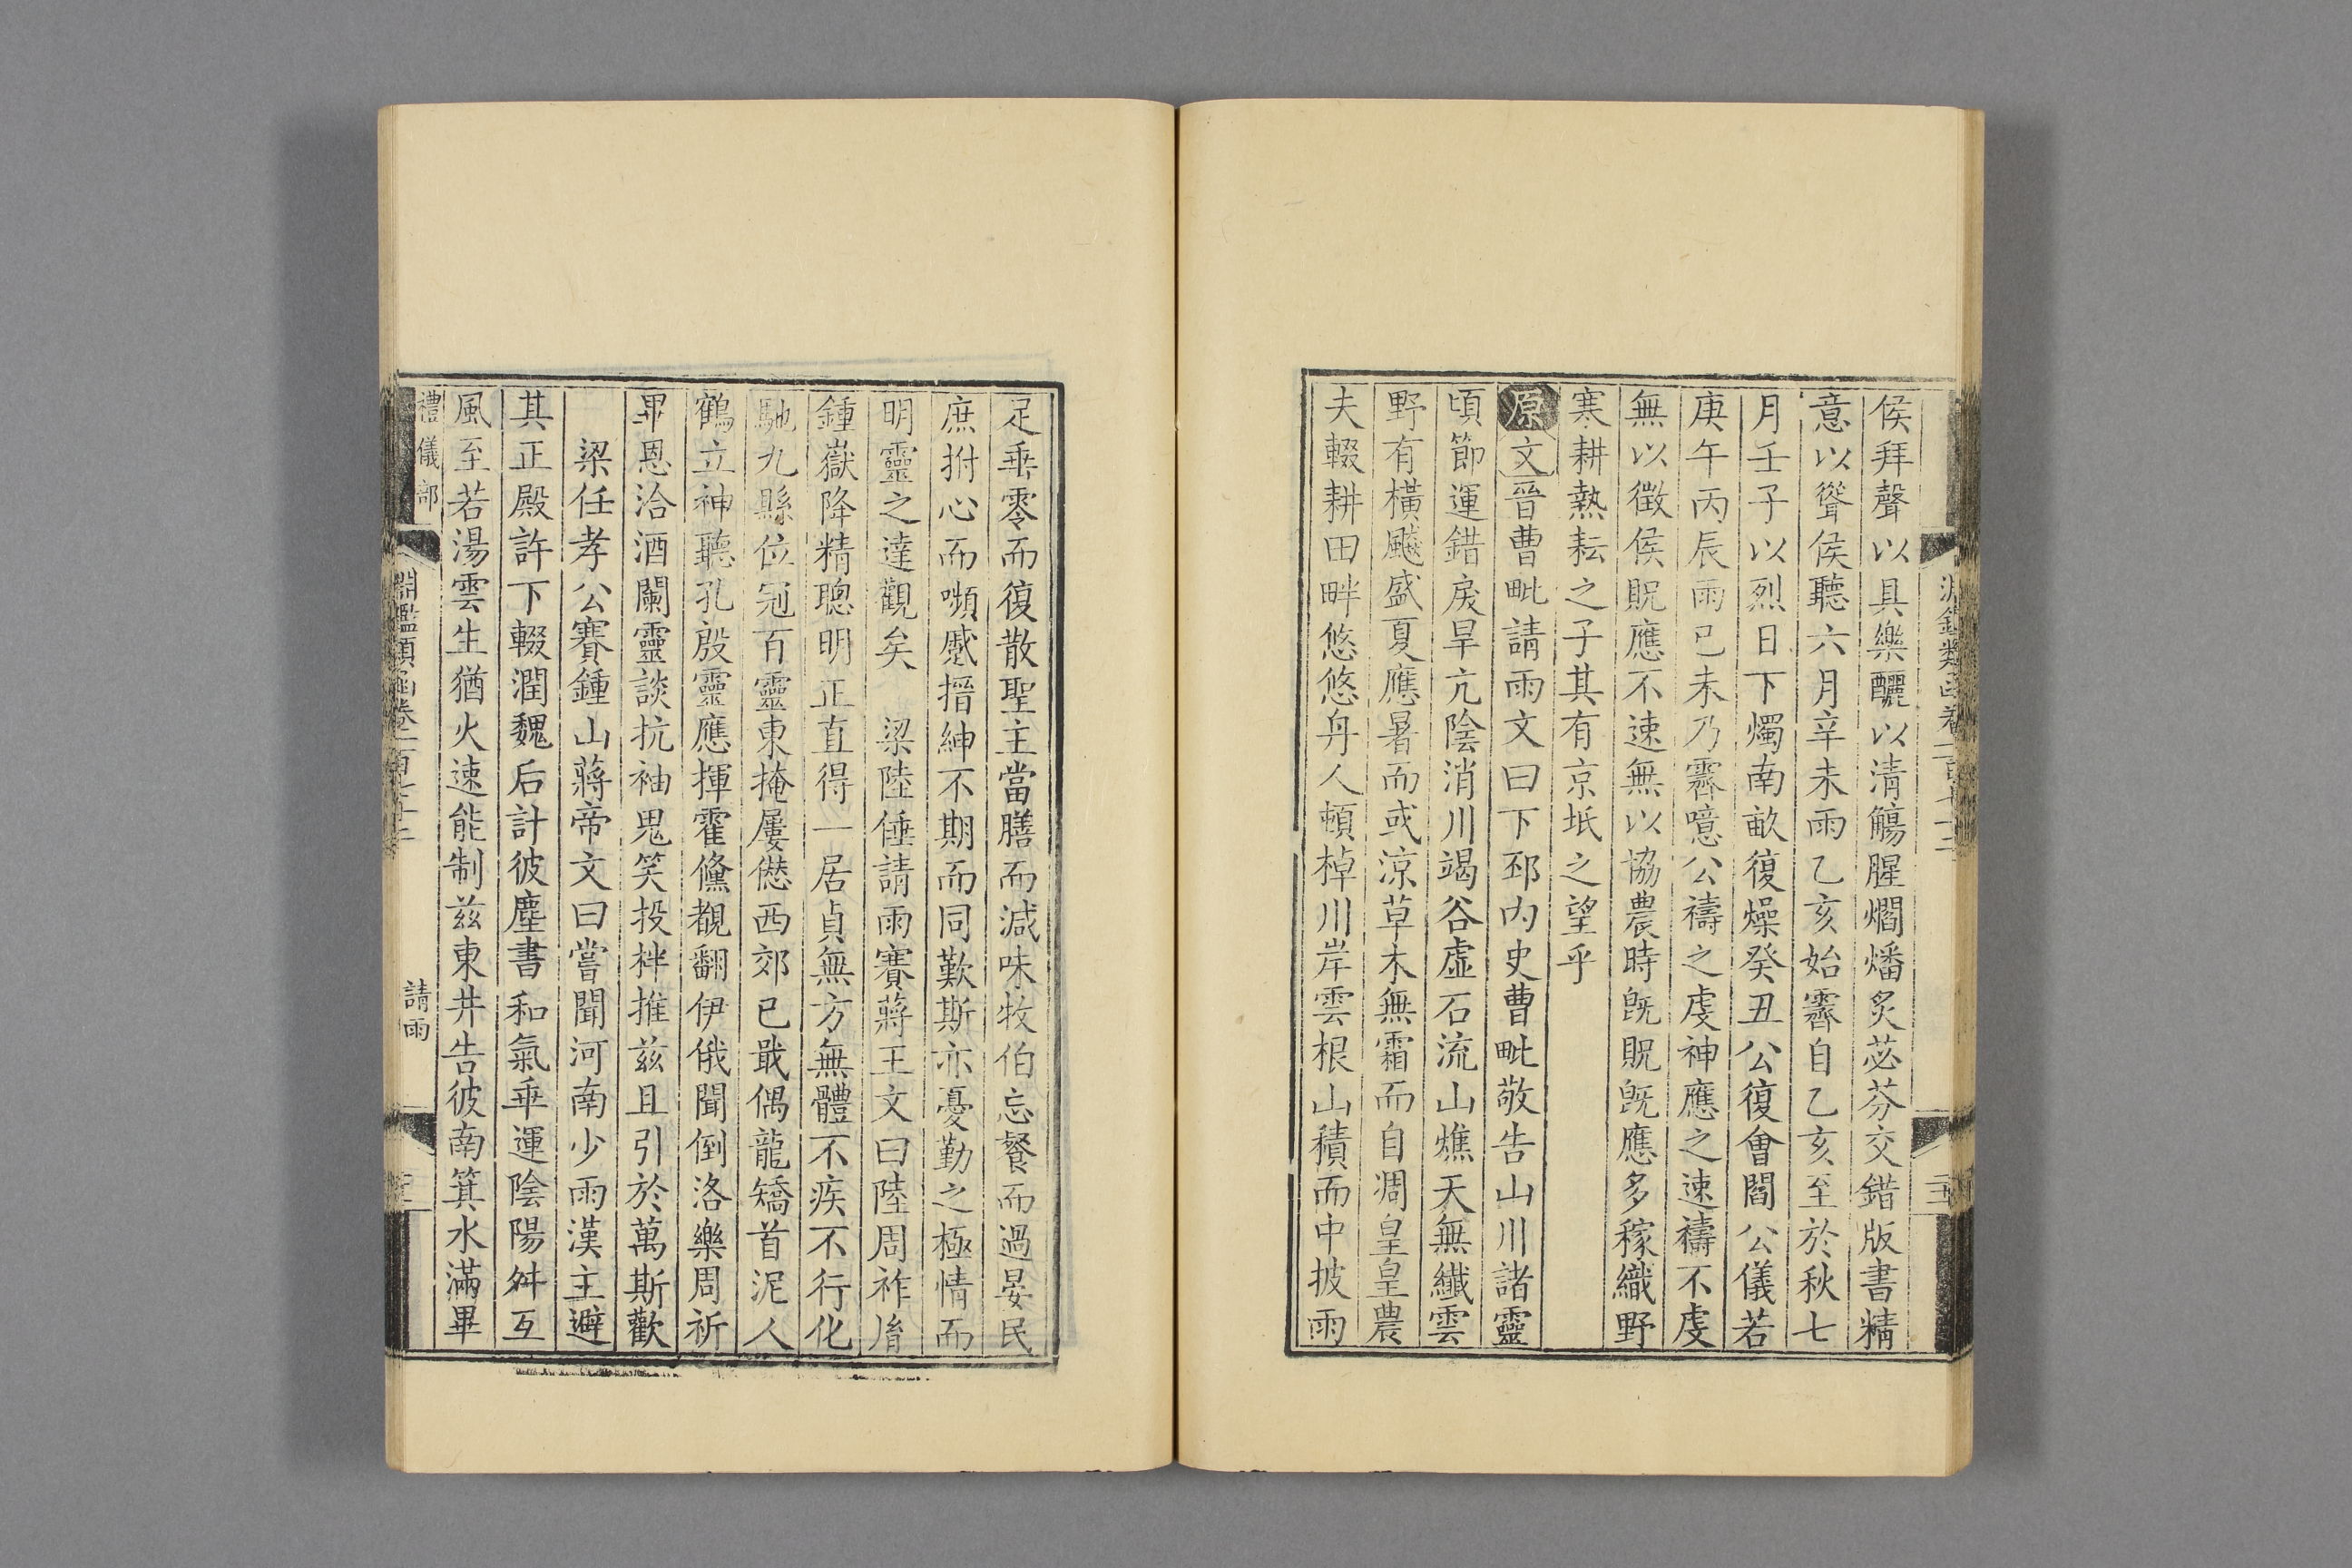 侯拜聲以具樂釃以清觴腥爓燔炙苾芬交錯版書精
意以聳侯聽六月辛未雨乙亥始霽自乙亥至於秋七
月壬子以烈日下燭南畝復燥癸丑公復會閻公儀若
庚午丙辰雨己未乃霽噫公禱之虔神應之速禱不虔
無以徵侯貺應不速無以協農時旣貺旣應多稼織野
寒耕熱耘之子其有京坻之望乎
原文晉曹毗請雨文曰下邳內史曹毗敬告山川諸靈
頃節運錯戾旱亢陰消川竭谷虛石流山燋天無纖雲
野有橫飈盛夏應暑而或涼草木無霜而自凋皇皇農
夫輟耕田畔悠悠舟人頓棹川岸雲根山積而中披雨
足垂零而復散聖主當膳而減味牧伯忘餐而過晏民
庶拊心而嚬蹙搢紳不期而同歎斯亦憂勤之極情而
明靈之達觀矣　梁陸倕請雨賽蔣王文曰陸周祚胤
鍾嶽降精聰明正直得一居貞無方無體不疾不行化
馳九縣位冠百靈東掩屢愆西郊已戢偶龍矯首泥人
鶴立神聽孔殷靈應揮霍儵覩翻伊俄聞倒洛樂周祈
畢恩洽酒闌靈談抗袖鬼笑投柈推兹且引於萬斯歡
梁任孝公賽鍾山蔣帝文曰嘗聞河南少雨漢主避
其正殿許下輟潤魏后計彼塵書和氣垂運陰陽舛互
風至若湯雲生猶火速能制兹東井告彼南箕水滿畢
禮儀部
淵鑑類函卷一百七十二
請雨